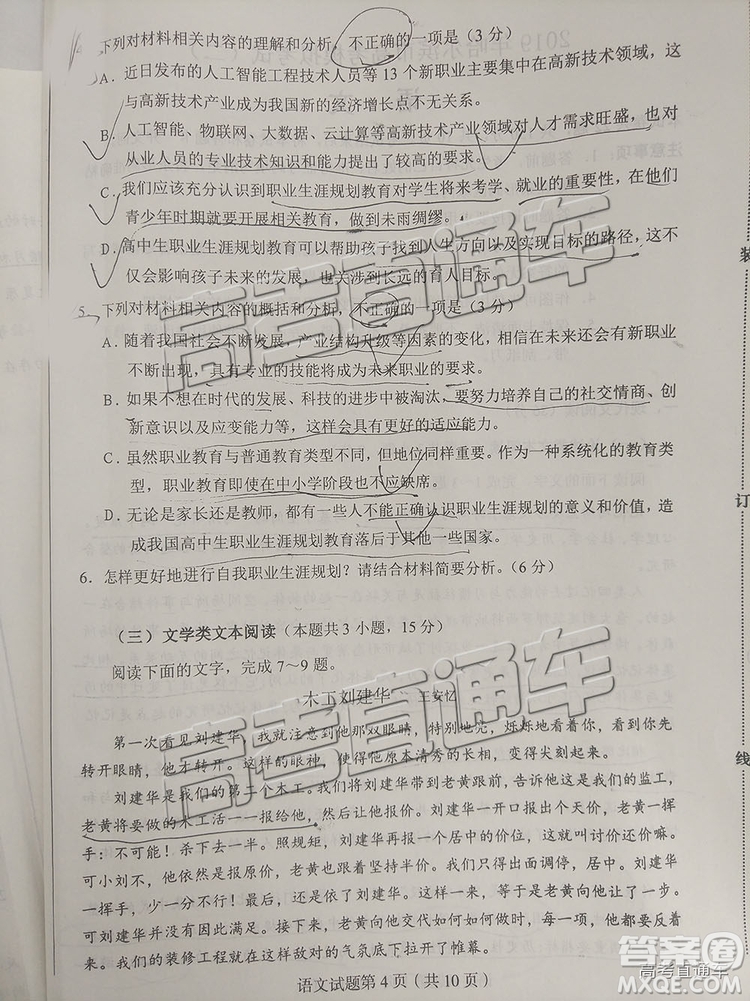 下列对材料相关内容的理解和分析，不正确的一项是（3 分）
A．近日发布的人工智能工程技术人员等 13 个新职业主要集中在高新技术领域，这
与高新技术产业成为我国新的经济增长点不无关系。
B．人工智能、物联网、大数据、云计算等高新技术产业领域对人才需求旺盛，也对
从业人员的专业技术知识和能力提出了较高的要求。
C．我们应该充分认识到职业生涯规划教育对学生将来考学、就业的重要性，在他们
青少年时期就要开展相关教育，做到未雨绸缪。
D．高中生职业生涯规划教育可以帮助孩子找到人生方向以及实现目标的路径，这不
仅会影响孩子未来的发展，也关涉到长远的育人目标。
5．下列对材料相关内容的概括和分析，不正确的一项是（3 分）
A．随着我国社会不断发展，产业结构升级等因素的变化，相信在未来还会有新职业
不断出现，具有专业的技能将成为从事职业的要求。
B．如果不想在时代的发展、科技的进步中被淘汰，要努力培养自己的社交情商、创
新意识以及应变能力等，这样会具有更好的适应能力。
C．虽然职业教育与普通教育类型不同，但地位同样重要。作为一种系统化的教育类
型，职业教育即使在中小学阶段也不应缺席。
D．无论是家长还是教师，都有一些人不能正确认识职业生涯规划的意义和价值，造
成我国高中生职业生涯规划教育落后于其他一些国家。
6．怎样更好地进行自我职业生涯规划？请结合材料简要分析。（6 分）
（三）文学类文本阅读（本题共 3 小题，15 分）
阅读下面的文字，完成 7～9 题。
木工刘建华 王安忆
第一次看见刘建华，我就注意到他那双眼睛，特别地亮，烁烁地看着你。见你去看他，
转开眼睛，他才转开。这样的眼神，使他原本清秀的长相，变得尖刻起来。
刘建华是我们的第二个木工。我们将刘建华带到老黄跟前，告诉他这是我们的监工，
老黄将要做的木工活一一报给他，然后让他报价。刘建华一开口报出个天价，老黄一挥
手：不可能！杀下去一半。照规矩，刘建华再报一个居中的价位，这就叫讨价还价嘛。
可小刘不，他还是报原价。老黄也坚持半价。我们只得出面调停，居中。刘建华再是
一挥手，少一分不行！最后，还是依了刘建华。这样一来，等于是老黄向他让了一步。
刘建华却没有因此满足。接下来，老黄向他交代如何如何做时，每一项，他都要发
我们的装修工程就在这样对抗的气氛底下拉开了帷幕。
语文试题第 4 页（共 10 页）
装
订
线
高考直通车
高考直通车
高考直通车
答案圈
MXQE.COM